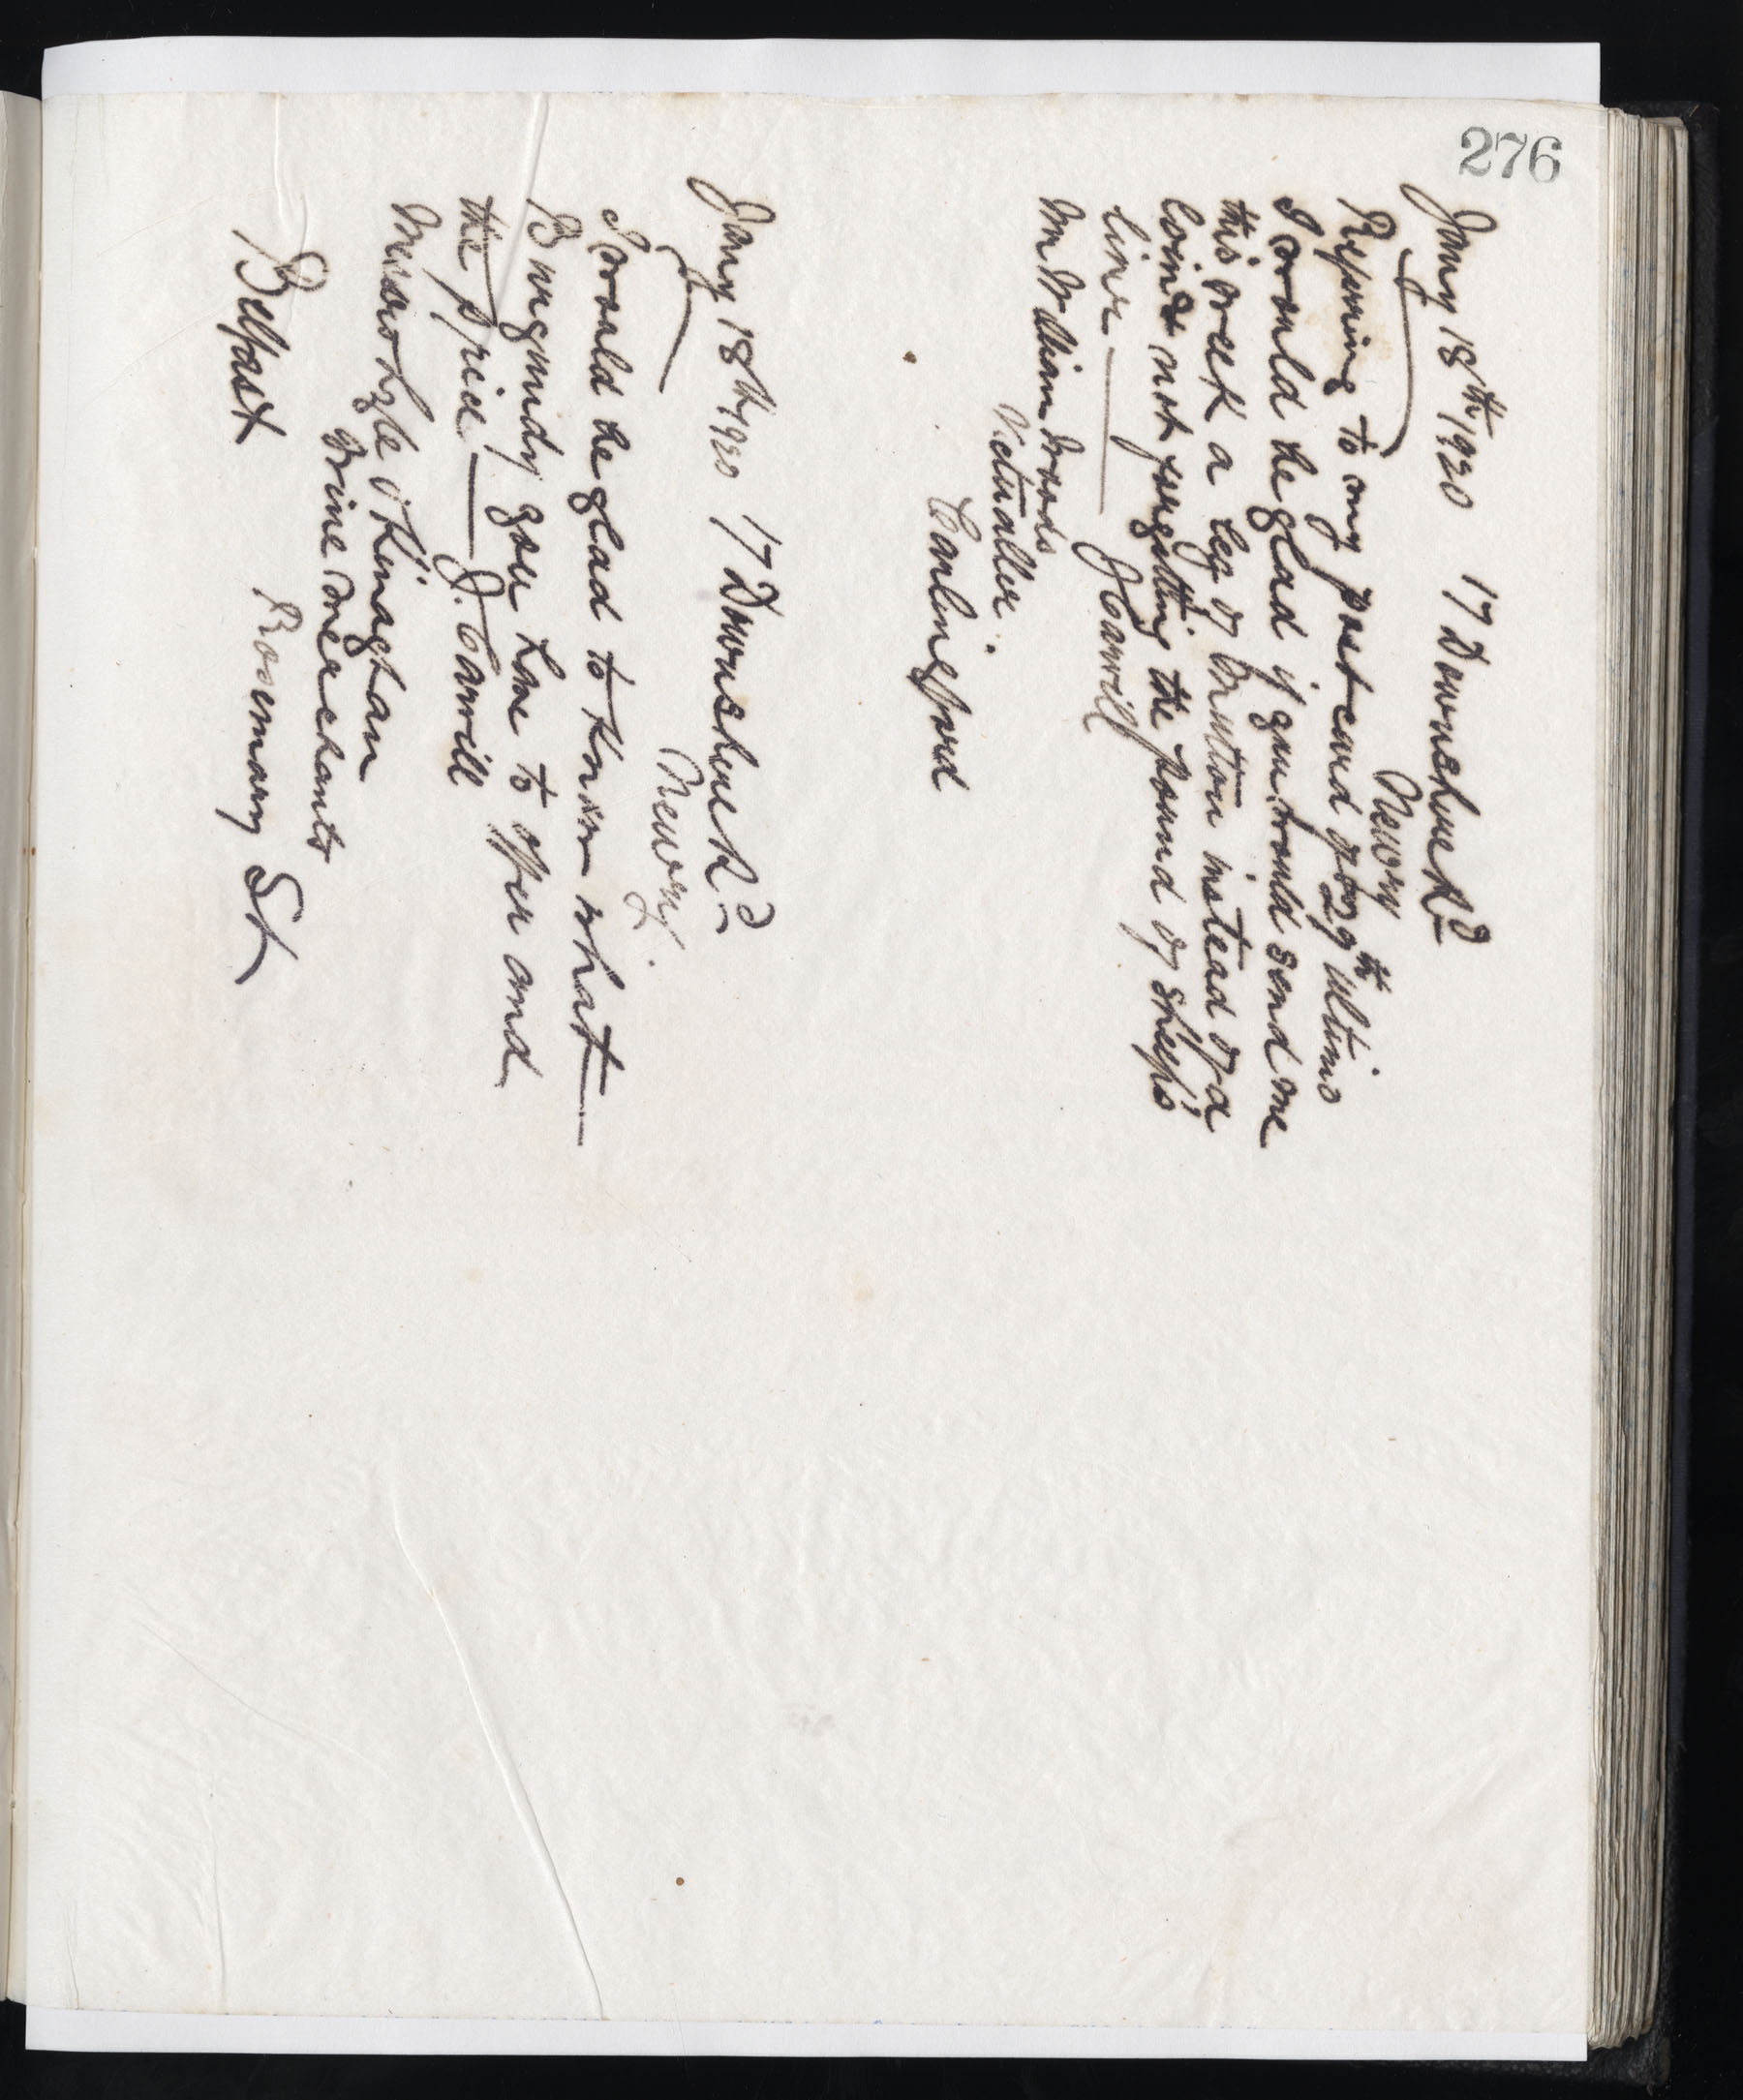 276
Jany 18th 1920 17 Downshire Rd
Newry
Refering to my post card of 29th ultimo
I would be glad if you would send me
this week a leg of Mutton instead of a
loin & not forgetting the pound of sheep's
liver — J Carvill
Mr William Woods
Victualler.
Carlingford
Jany 18th 1920 17 Downshire Rd
Newry.
I would be glad to know what
Burgundy you have to offer and
the price — J. Carvill
Messrs Lyle & Kinaghan
Wine Merchants
Rosemary St
Belfast